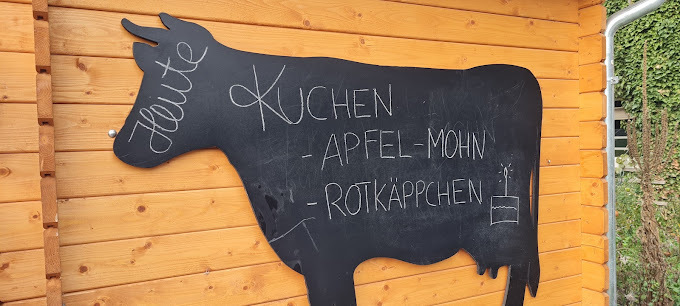 Heute
KUCHEN
- APFEL-MOHN
- ROTKÄPPCHEN